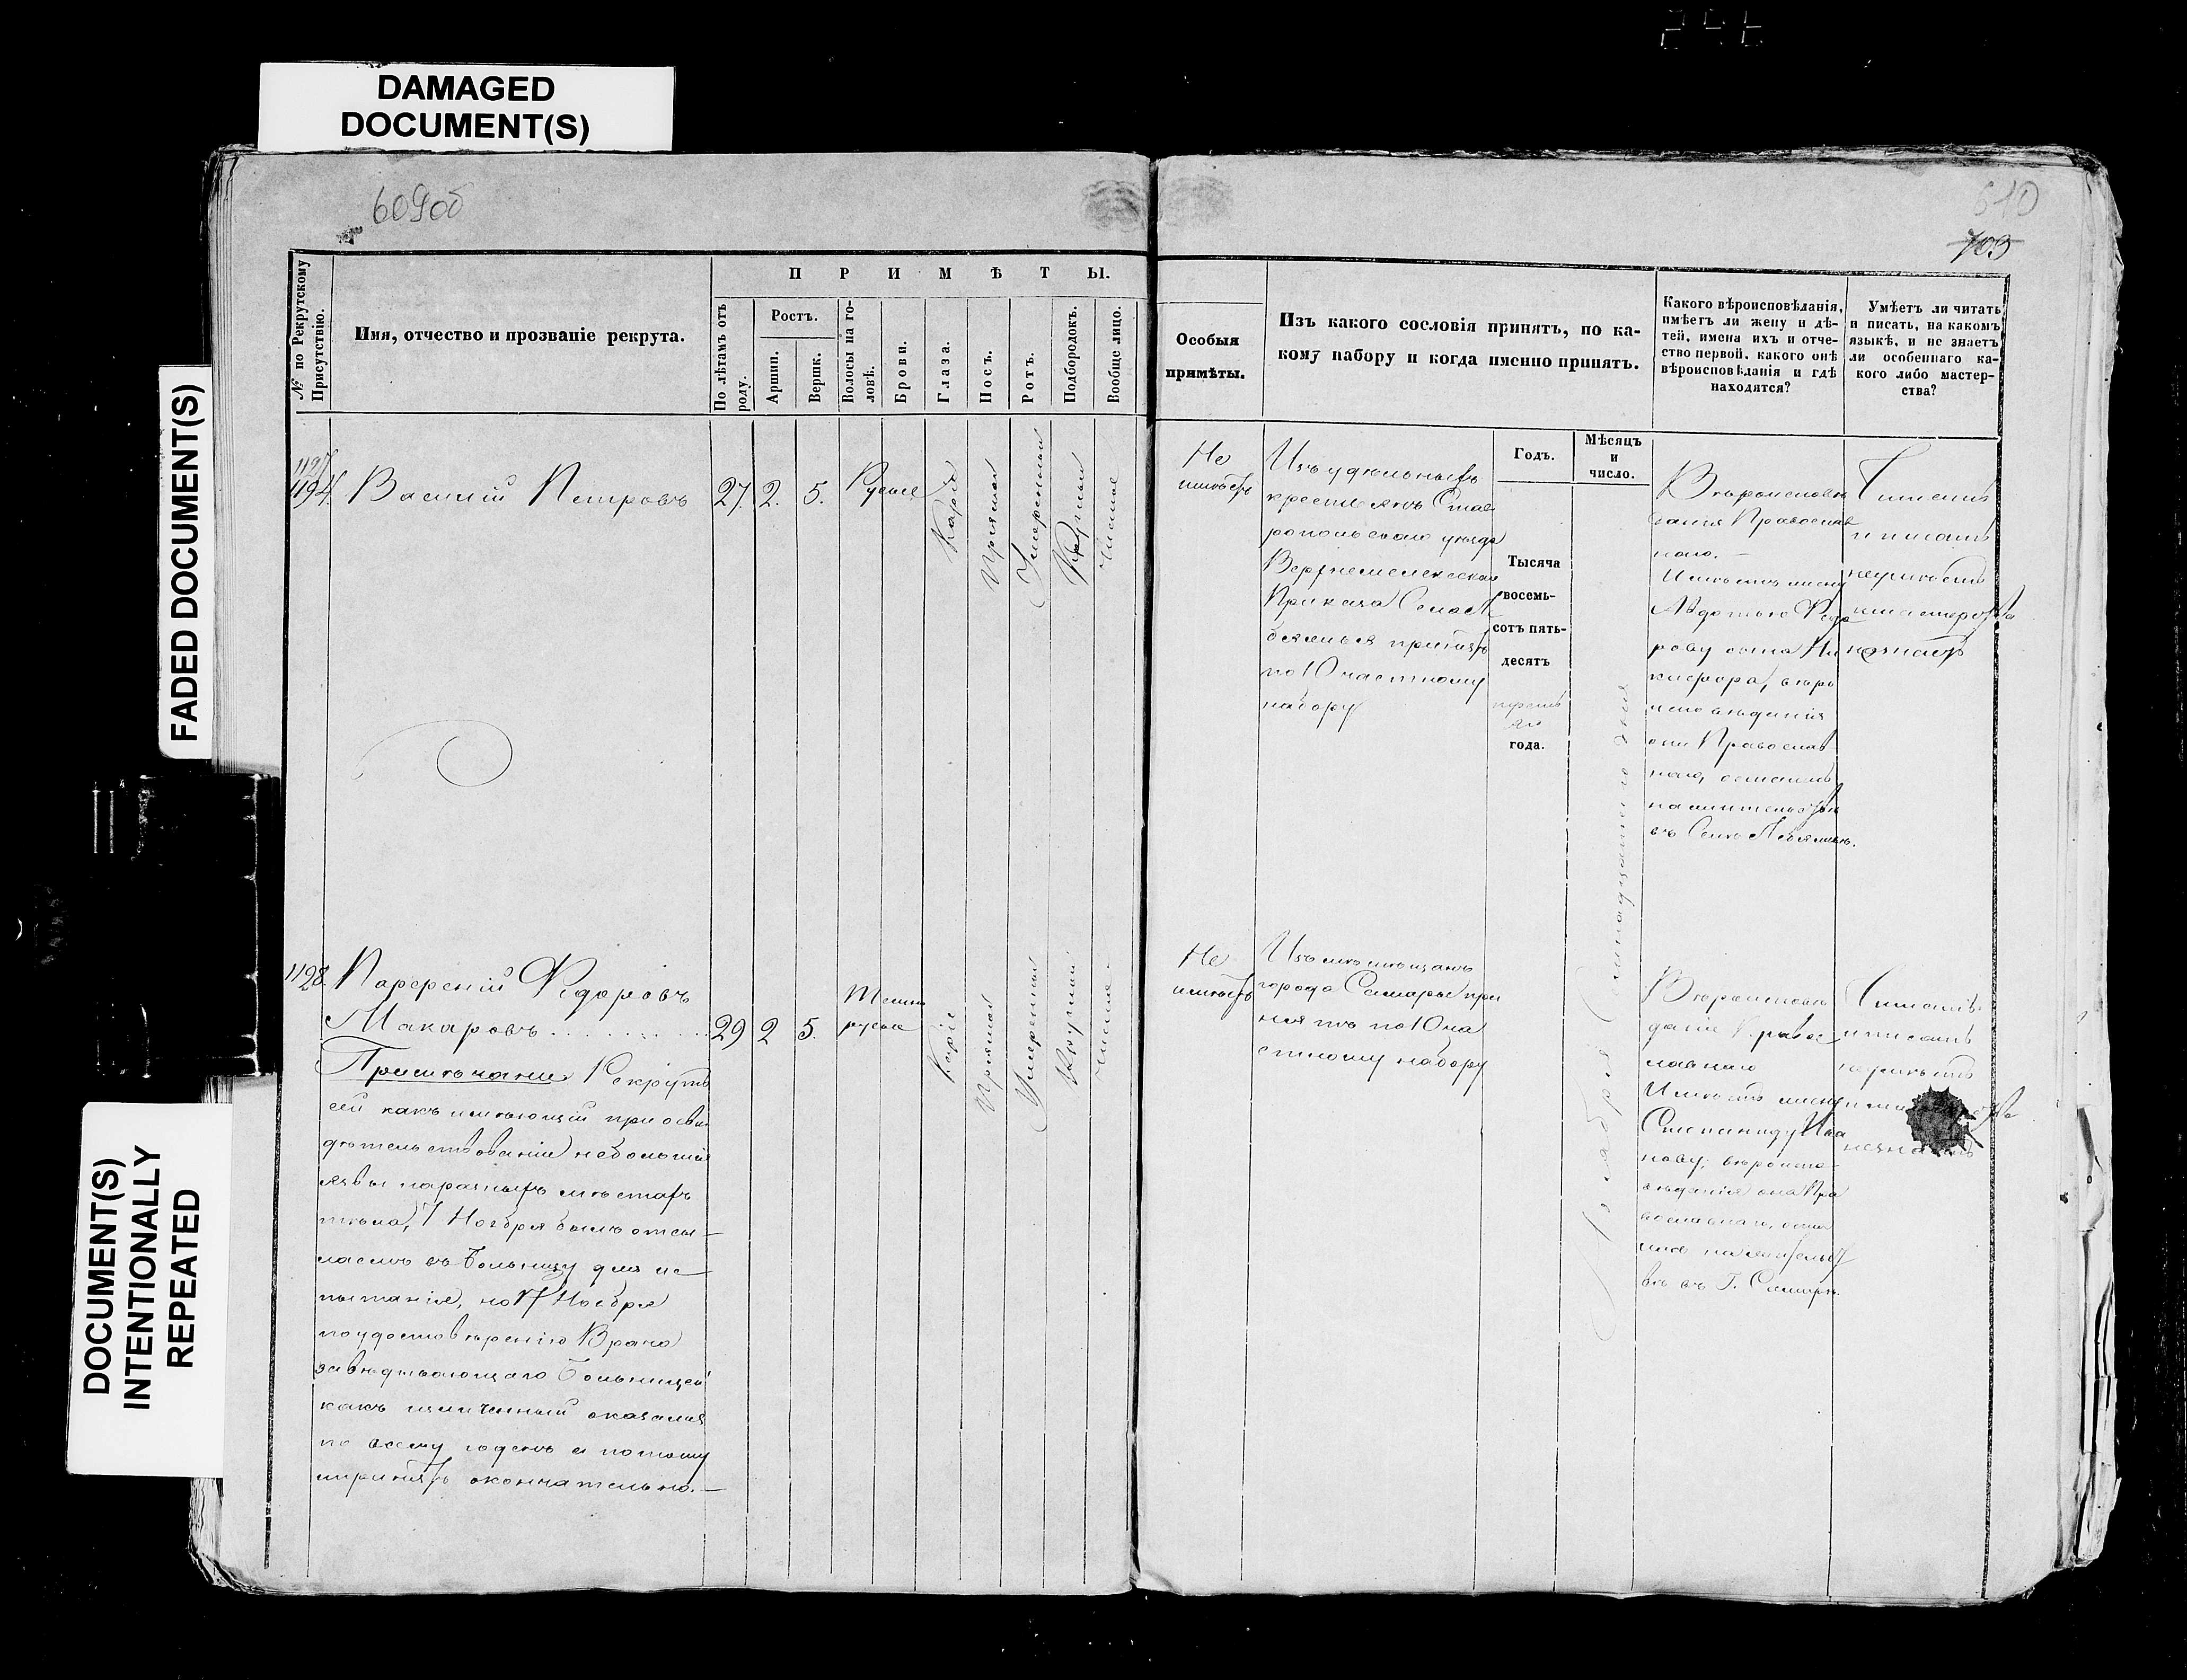 DAMAGED
DOCUMENT(S)
FADED DOCUMENT(S)
DOCUMENT(S)
INTENTIONALLY
REPEATED
609об
610
703
№ по Рекрутскому
Присутствію.
Имя, отчество и прозваніе рекрута.
ПРИМѢТЫ.
По лѣтамъ отъ
роду.
Ростъ.
Аршин.
Вершк.
Волосы на го-
ловѣ.
Брови.
Глаза.
Носъ.
Ротъ.
Подбородокъ.
Вообще лицо.
Особыя
примѣты.
Изъ какого сословія принятъ, по ка-
кому набору и когда именно принятъ.
Какого вѣроисповѣданія,
имѣетъ ли жену и дѣ-
тей, имена ихъ и отче-
ство первой, какого онѣ
вѣроисповѣданія и гдѣ
находятся?
Умѣетъ ли читать
и писать, на какомъ
языкѣ, и не знаетъ
ли особеннаго ка-
кого либо мастер-
ства?
Годъ.
Мѣсяцъ
и
число.
1127
1194.
Василій Петровъ
27.
2.
5.
Русые
Каріе
Прямой
Умеренный
Круглый
Чистое
Не
имѣетъ
Изъ удѣльныхъ
крестьянъ Став
ропольскаго уѣзда
Приказа Села
принятъ
по 10 частному
набору
Тысяча
восемь-
сотъ пять-
десятъ
третья
го
года.
Ноября семнадцатаго дня
Вѣроисповѣ
данія Православ
наго.
Имѣетъ жену
Авдотью Федо
рову сына Ни
кифора, вѣро
исповѣданія
они Православ
наго, остались
на жительствѣ
въ Селѣ
Читать
и писать
неумѣетъ
и мастерства
незнаетъ
1128.
Парфеній Федоровъ
Макаровъ
29
2
5.
Темно
русые
Каріе
Прямой
Умеренный
Круглый
Чистое
Примѣчаніе Рекрутъ
сей какъ имѣющій при осви
дѣтельствованіи небольшія
язвы на разныхъ мѣстахъ
тѣла, 7 Ноября былъ отсы-
лаемъ въ Больницу для ис
пытанія, но 17 Ноября
по удостовѣренію Врача
завѣдывающаго Больницей
какъ изличенный оказался
по всему годенъ и потому
и принятъ окончательно.
Не
имѣетъ
Изъ мѣщанъ
города Самары при
нятъ по 10 ча
стному набору
Вѣроисповѣ
даніе Правос
лавнаго
Имѣетъ жену
Степаниду Ива
нову, вѣроиспо-
вѣданія она Пра
вославнаго, оста
лась на жительст
вѣ въ Г. Самарѣ.
Читать
и писать
неумѣетъ
незнаетъ